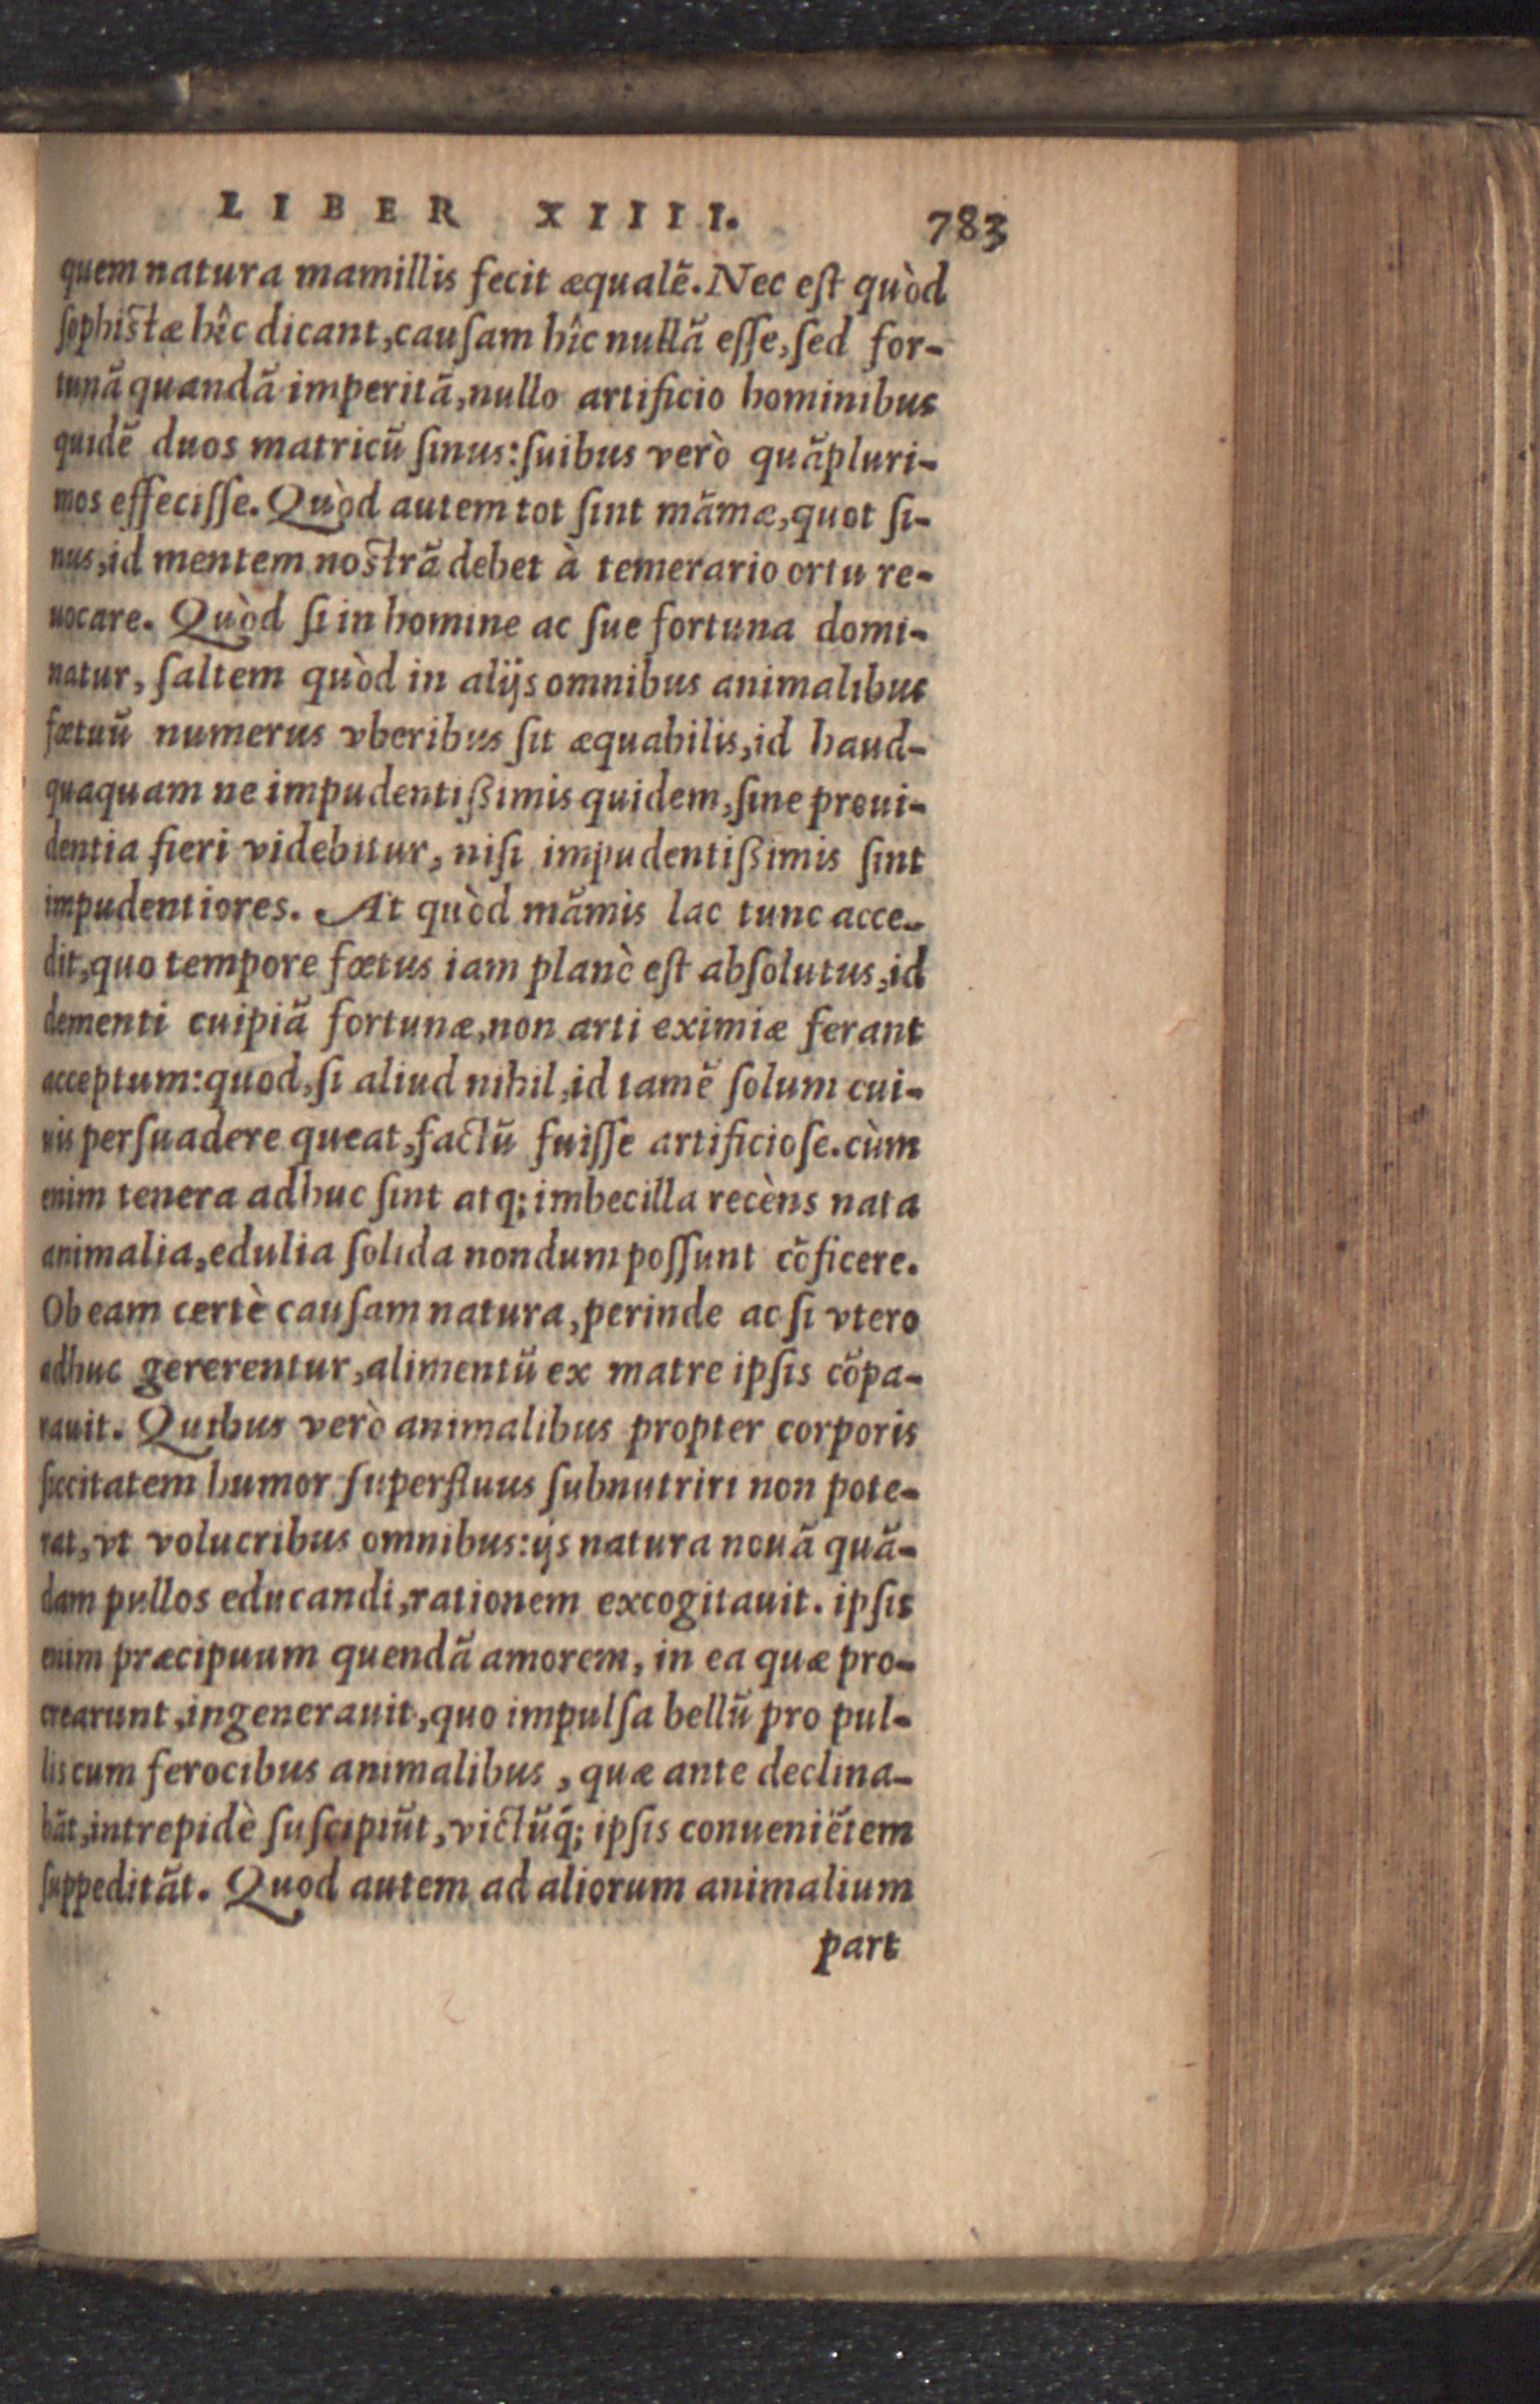 LIBER XIIII. 783
quem natura mamillis fecit æqualẽ. Nec eſt quòd
ſophistæ hîc dicant, cauſam hîc nullã eſſe, ſed for-
tunã quandã imperitã, nullo artificio hominibus
quidẽ duos matricũ ſinus: ſuibus verò quãpluri-
mos effeciſſe. Quòd autem tot ſint mãmæ, quot ſi-
nus, id mentem nostrã debet à temerario ortu re-
uocare. Quòd ſi in homine ac ſue fortuna domi-
natur, ſaltem quòd in alijs omnibus animalibus
fœtuũ numerus vberibus ſit æquabilis, id haud-
quaquam ne impudentißimis quidem, ſine proui-
dentia fieri videbitur, niſi impudentißimis ſint
impudentiores. At quòd mãmis lac tunc acce-
dit, quo tempore fœtus iam planè eſt abſolutus, id
dementi cuipiã fortunæ, non arti eximiæ ferant
acceptum: quod, ſi aliud nihil, id tamẽ ſolum cui-
uis perſuadere queat, factũ fuiſſe artificioſe. cùm
enim tenera adhuc ſint atq; imbecilla recèns nata
animalia, edulia ſolida nondum poſſunt cõficere.
Ob eam certè cauſam natura, perinde ac ſi vtero
adhuc gererentur, alimentũ ex matre ipſis cõpa-
rauit. Quibus verò animalibus propter corporis
ſiccitatem humor ſuperfluus ſubnutriri non pote-
rat, vt volucribus omnibus: ijs natura nouã quã-
dam pullos educandi, rationem excogitauit. ipſis
enim præcipuum quendã amorem, in ea quæ pro-
crearunt, ingenerauit, quo impulſa bellũ pro pul-
lis cum ferocibus animalibus, quæ ante declina-
bãt, intrepidè ſuſcipiũt, victũq́; ipſis conueniẽtem
ſuppeditãt. Quod autem ad aliorum animalium
part